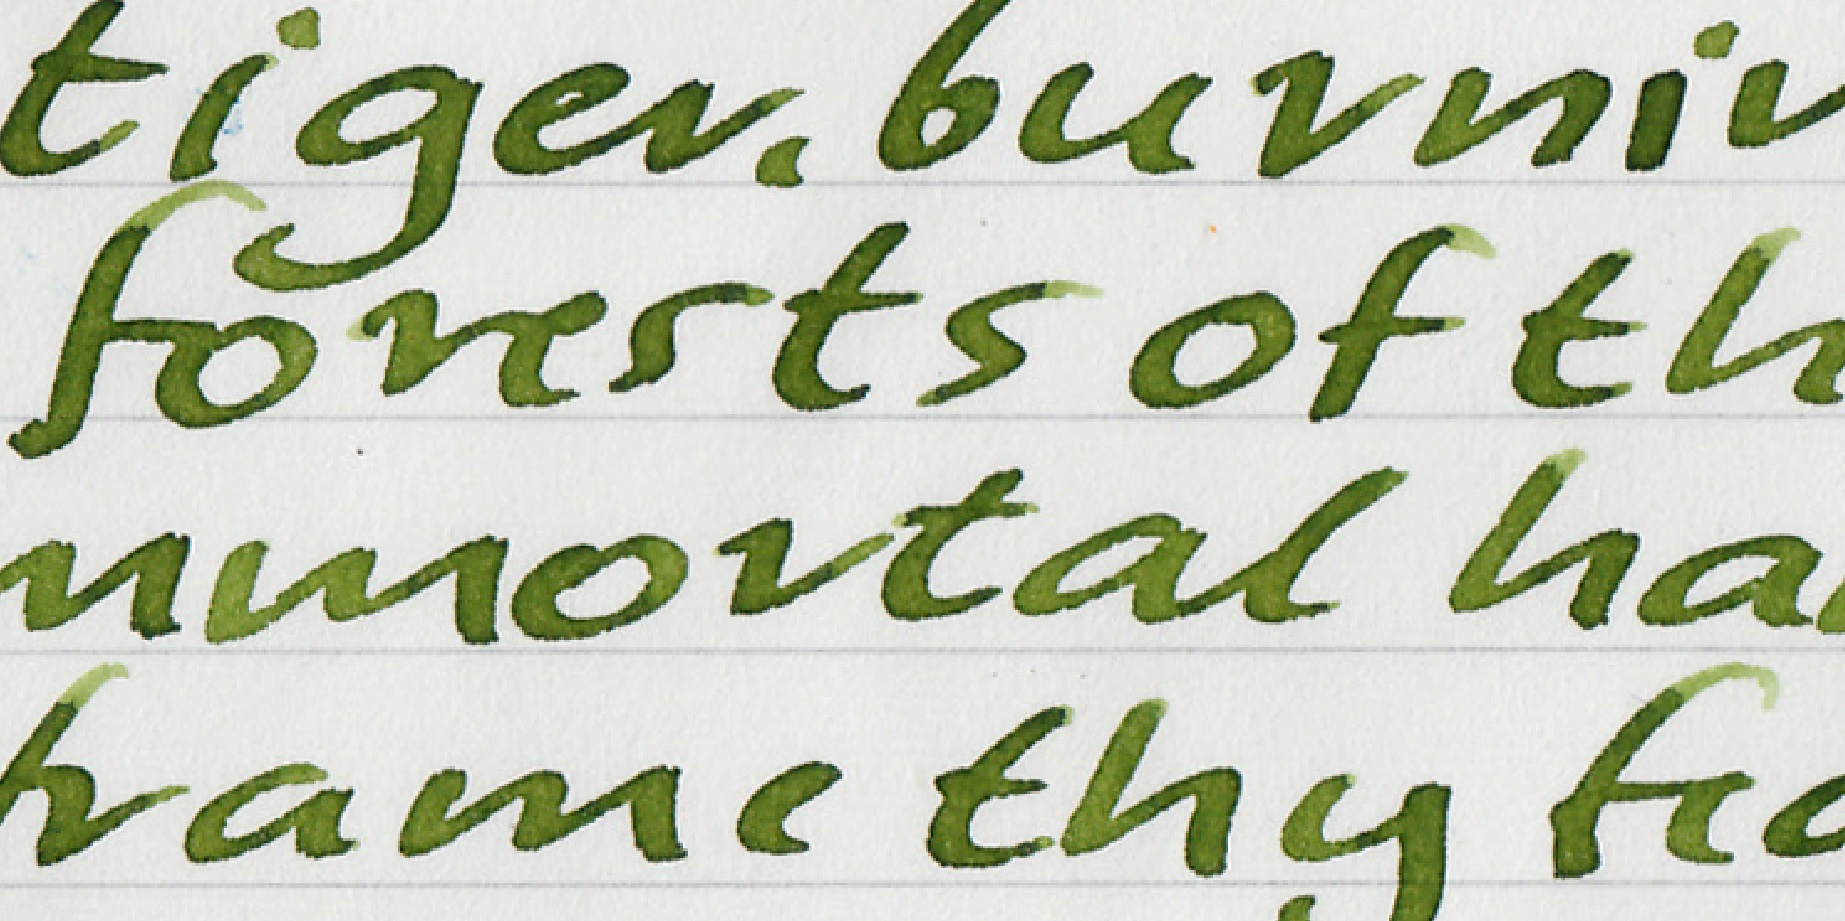 tiger, burnin
forests of th
mmortal ha
frame thy fea